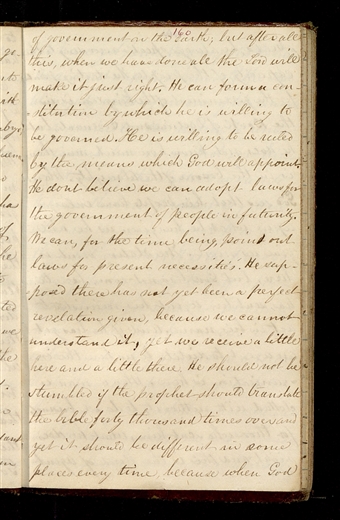 160
of government on the Earth; but after all
this, when we have done all the Lord will
make it just right. He can form a con-
stitution by which he is willing to
be governed. He is willing to be ruled
by the means which God will appoint.
He dont believe we can adopt laws for
the government of people in futurity.
We can, for the time being, point out
laws for present necessities. He sup-
posed there has not yet been a perfect
revelation given, because we cannot
understand it, yet we receive a little
here and a little there. He should not be
stumbled if the prophet should translate
the bible forty thousand times over and
yet it should be different in some
places every time, because when God